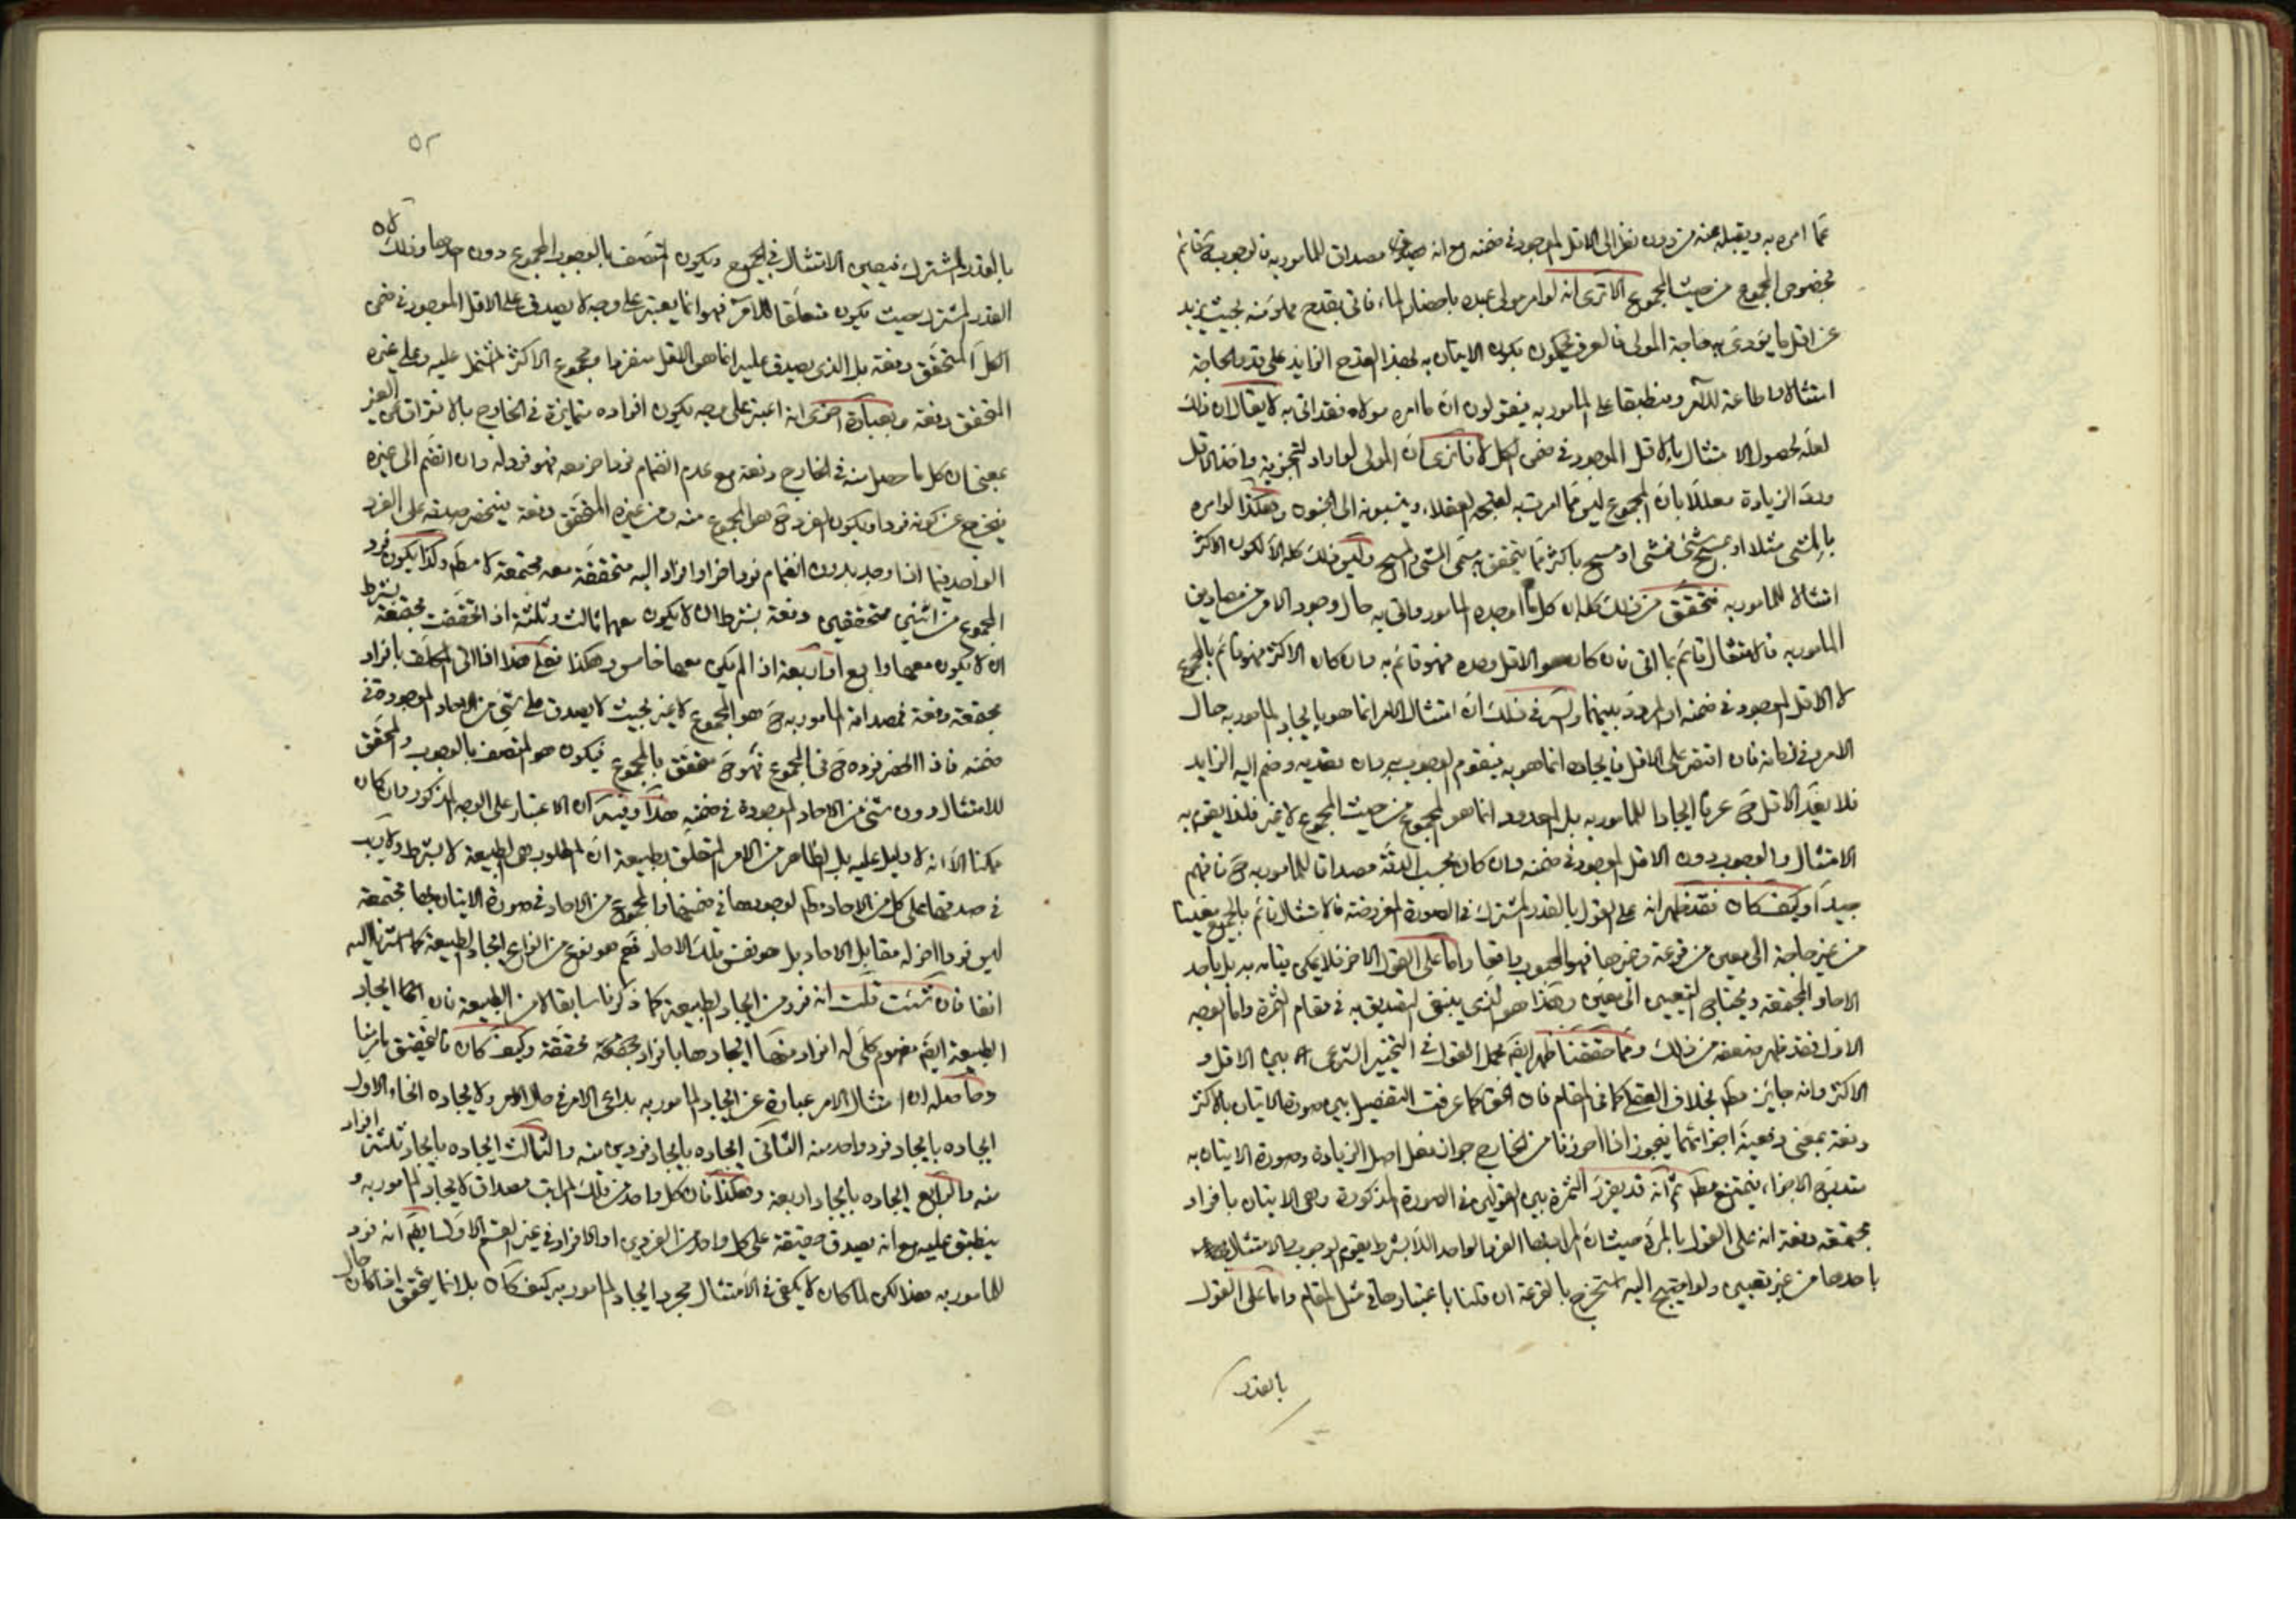 عما امر به ويقبله عنه من دون نظر الى الاقل الموجود في ضمنه مع انه مصداق للمامور به فالوجوب ح قائم
بخصوص المجموع من حيث المجموع الا ترى انه لو امر مولى عبده باحضار الماء فاتى بقدح مملو منه بحيث يزيد
عن اقل ما يؤدى به حاجة المولى فالعرف يحكمون بكون الاتيان به بهذا القدح الزايد على قدر الحاجة
امتثالا واطاعة للامر ومنطبقا على المامور به فيقولون ان ما امره مولاه فقد اتى به لا يقال ان ذلك
لعله لحصول الامتثال بالاقل الموجود في ضمن الكل لانا نرى ان المولى لو اراد التجزية واخذ الاقل
ورد الزيادة معللا بان المجموع ليس مما امرت به لقبحه العقلاء وينسبونه الى الجنون وهكذا لو امره
بالمشي مثلا او بمسح شئ فمشى او مسح باكثر مما يتحقق به مسمى المشي والمسح وليس ذلك كله الا لكون الاكثر
امتثالا للمامور به فتحقق من ذلك كله ان كل ما اوجده المامور واتى به حال وجود الامر من مصاديق
المامور به فالامتثال قائم بما اتى فان كان هو الاقل وحده فهو قائم به وان كان الاكثر فهو قائم بالمجموع
لا الاقل الموجود في ضمنه او المردد بينهما والسر في ذلك ان امتثال الامر انما هو بايجاد المامور به حال
الامر في مكانه فان اقتصر على الاقل فايجاده انما هو به فيقوم الوجوب به وان تعديه وضم اليه الزايد
فلا يعد الاقل ح عرفا ايجادا للمامور به بل المعدود انما هو المجموع من حيث المجموع لا غير فلذا يقوم به
الامتثال والوجوب دون الاقل الموجود في ضمنه وان كان بحسب الدقة مصداقا للمامور به ح فافهم
جيدا وكيف كان فقد ظهر انه على القول بالقدر المشترك في الصورة المفروضة فالامتثال قائم بالجميع معينا
من غير حاجة الى معين من قرعة وغيرها فهو المحبوب واقعا واما على القول الاخر فلا يمكن قيامه به بل باحد
الاحاد المجتمعة ويحتاج التعيين الى معين وهذا هو الذي ينبغي التصديق به في مقام الثمرة واما الوجه
الاول فقد ظهر ضعفه من ذلك ومما حققنا ظهر ايضا محمل القول في التخيير الشرعي بين الاقل و
الاكثر وانه جايز مط بخلاف العقلي كما في المقام فان الحق كما عرفت التفصيل بين صورة الاتيان بالاكثر
دفعة بمعنى دفعية اجزائهما فيجوز اذا احرزنا من الخارج جواز فعل اصل الزيادة وصورة الاتيان به
متدرج الاجزاء فيمتنع مط ثم انه قد يقرر الثمرة بين القولين في الصورة المذكورة وهى الاتيان بافراد
مجتمعة دفعة انه على القول بالمرة حيث ان المراد بها الفرد الواحد اللابشرط يقوم الوجوب والامتثال
باحدها من غير تعيين ولو احتيج اليه استخرج بالقرعة ان قلنا باعتبارها في مثل المقام واما على القول
بالقدر
٥٢
بالقدر المشترك فيصير الامتثال في الجميع ويكون المتصف بالوجوب المجموع دون احدها وذلك لان
القدر المشترك حيث يكون متعلقا للامر فهو انما يعتبر على وجه لا يصدق على الاقل الموجود في ضمن
الكل المتحقق دفعة بل الذي يصدق عليه انما هو الاقل منفردا ومجموع الاكثر المشتمل عليه وعلى غيره
المتحقق دفعة وبعبارة اخرى انه اعتبر على وجه يكون افراده متمايزة في الخارج بالافتراق عن الغير
بمعنى ان كل ما حصل منه في الخارج دفعة مع عدم انضمام فرد اخر معه فهو فرد له وان انضم الى غيره
يخرج عن كونه فردا ويكون الفرد ح هو المجموع منه ومن غيره المتحقق دفعة فينحصر صدقه على الفرد
الواحد فيما اذا وجد بدون انضمام فرد اخر او افراد اليه متحققة معه مجتمعة لا مط وكذا يكون فرد
المجموع من اثنين متحققين دفعة بشرط ان لا يكون معهما ثالث وثلثة اذا تحققت مجتمعة بشرط
ان لا يكون معهما رابع او اربعة اذا لم يكن معها خامس وهكذا فعلى هذا اذا اتى المكلف بافراد
مجتمعة دفعة فمصداق المامور به ح هو المجموع لا غير بحيث لا يصدق على شئ من الاحاد الموجودة في
ضمنه فاذا انحصر فرده ح في المجموع فهو ح متحقق بالمجموع فيكون هو المتصف بالوجوب والمحقق
للامتثال دون شئ من الاحاد الموجودة في ضمنه هذا وفيه ان الاعتبار على الوجه المذكور وان كان
ممكنا الا انه لا دليل عليه بل الظاهر من الامر المتعلق بطبيعة ان المطلوب هى الطبيعة لا بشرط ولا ريب
في صدقها على كل من الاحاد مط لوجودها في ضمنها والمجموع من الاحاد في صورة الاتيان بها مجتمعة
ليس فردا اخر له مقابل الاحاد بل هو نفس تلك الاحاد نعم هو نوع من انواع ايجاد الطبيعة كما اشرنا اليه
انفا فان شئت قلت انه فرد من ايجاد الطبيعة كما ذكرنا سابقا لا من الطبيعة فان ايجاد
الطبيعة ايضا مفهوم كلي له افراد منها ايجادها بافراد مجتمعة محققة وكيف كان فالتحقيق ما مر منا
وحاصله ان امتثال الامر عبارة عن ايجاد المامور به بداعي الامر في حال الامر ولايجاده انحاء الاول
ايجاده بايجاد فرد واحد منه الثاني ايجاده بايجاد فردين منه والثالث ايجاده بايجاد ثلثة افراد
منه والرابع ايجاده بايجاد اربعة وهكذا فان كل واحد من تلك المراتب مصداق لايجاد المامور به و
ينطبق عليه مع انه يصدق حقيقة على كل واحد من الفردين او الافراد في غير القسم الاول ايضا انه فرد
للمامور به هذا لكن لما كان لا يكفي في الامتثال مجرد ايجاد المامور به كيف كان بل انما يتحقق اذا كان حال